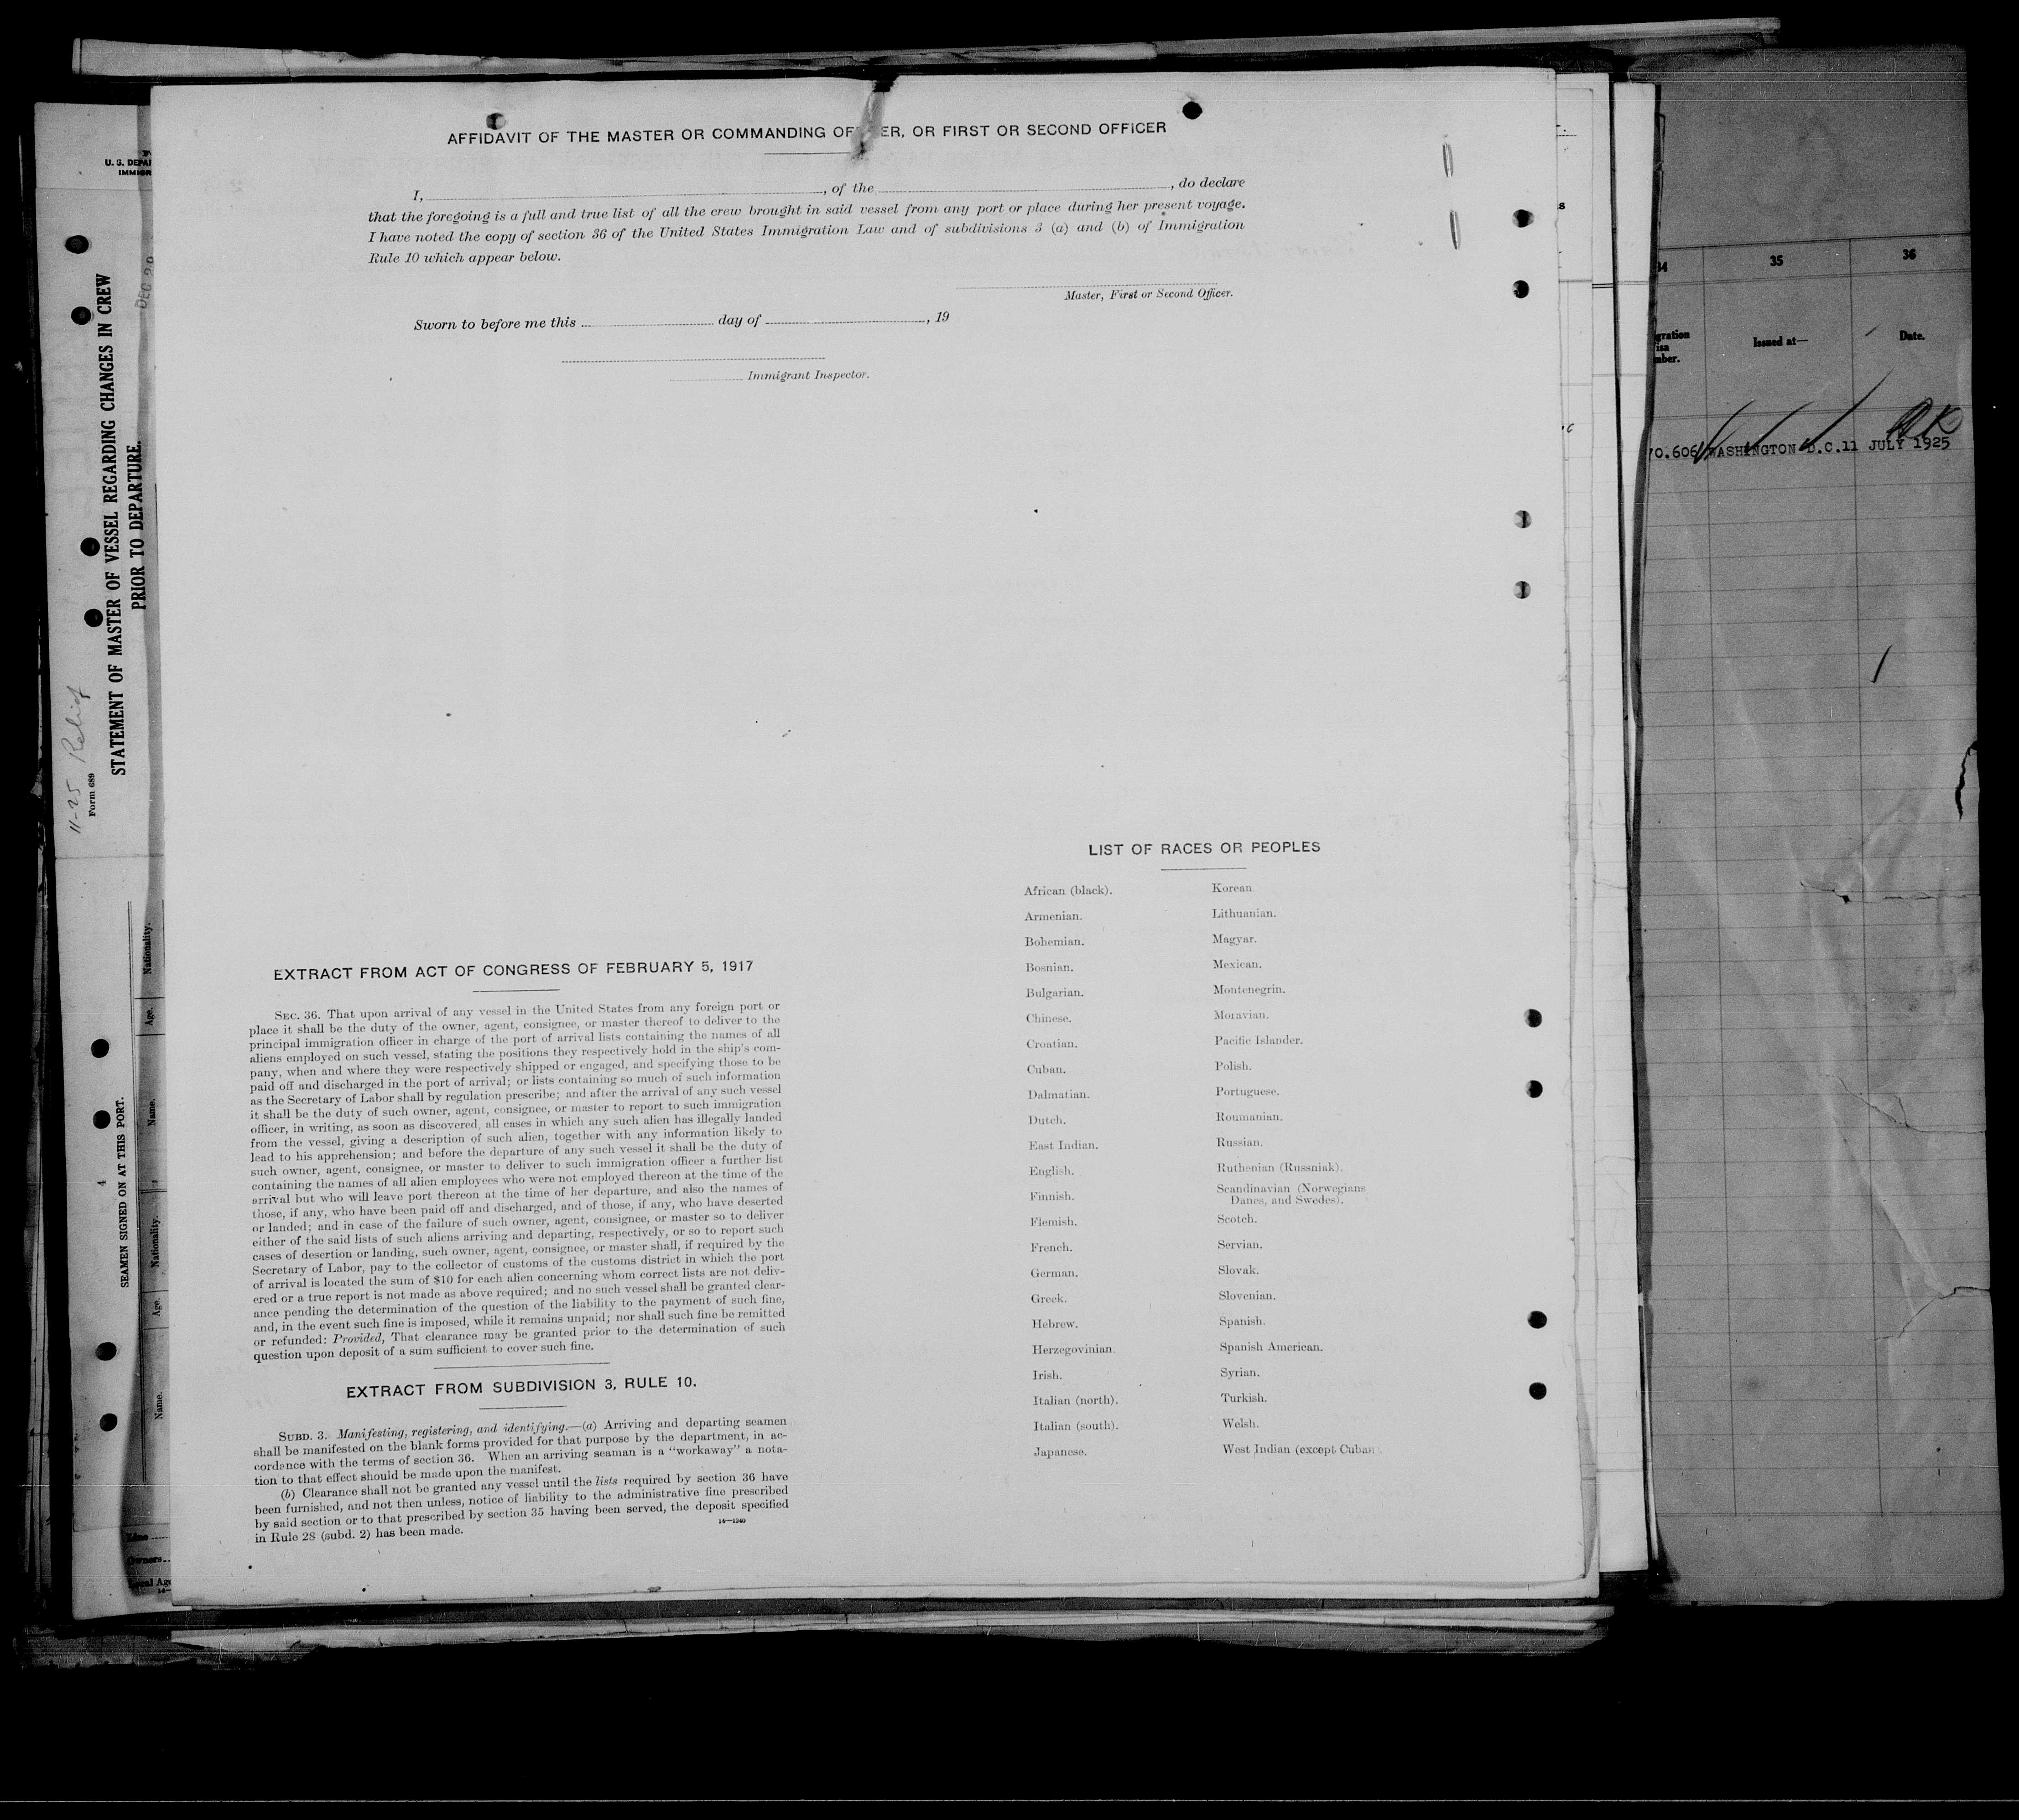 AFFIDAVIT OF THE MASTER OR COMMANDING OF ER, OR FIRST OR SECOND OFFICER
I, , of the , do declare
that the foregoing is a full and true list of all the crew brought in said vessel from any port or place during her present voyage.
I have noted the copy of section 36 of the United States Immigration Law and of subdivisions 3 (a) and (b) of Immigration
Rule 10 which appear below.
Master, First or Second Officer.
Sworn to before me this day of , 19
Immigrant Inspector.
EXTRACT FROM ACT OF CONGRESS OF FEBRUARY 5, 1917
SEC. 36. That upon arrival of any vessel in the United States from any foreign port or
place it shall be the duty of the owner, agent, consignee, or master thereof to deliver to the
principal immigration officer in charge of the port of arrival lists containing the names of all
aliens employed on such vessel, stating the positions they respectively hold in the ship's com-
pany, when and where they were respectively shipped or engaged, and specifying those to be
paid off and discharged in the port of arrival; or lists containing so much of such information
as the Secretary of Labor shall by regulation prescribe; and after the arrival of any such vessel
it shall be the duty of such owner, agent, consignee, or master to report to such immigration
officer, in writing, as soon as discovered, all cases in which any such alien has illegally landed
from the vessel, giving a description of such alien, together with any information likely to
lead to his apprehension; and before the departure of any such vessel it shall be the duty of
such owner, agent, consignee, or master to deliver to such immigration officer a further list
containing the names of all alien employees who were not employed thereon at the time of the
arrival but who will leave port thereon at the time of her departure, and also the names of
those, if any, who have been paid off and discharged, and of those, if any, who have deserted
or landed; and in case of the failure of such owner, agent, consignee, or master so to deliver
either of the said lists of such aliens arriving and departing, respectively, or so to report such
cases of desertion or landing, such owner, agent, consignee, or master shall, if required by the
Secretary of Labor, pay to the collector of customs of the customs district in which the port
of arrival is located the sum of $10 for each alien concerning whom correct lists are not deliv-
ered or a true report is not made as above required; and no such vessel shall be granted clear-
ance pending the determination of the question of the liability to the payment of such fine,
and, in the event such fine is imposed, while it remains unpaid; nor shall such fine be remitted
or refunded: Provided, That clearance may be granted prior to the determination of such
question upon deposit of a sum sufficient to cover such fine.
EXTRACT FROM SUBDIVISION 3, RULE 10.
SUBD. 3. Manifesting, registering, and identifying.—(a) Arriving and departing seamen
shall be manifested on the blank forms provided for that purpose by the department, in ac-
cordance with the terms of section 36. When an arriving seaman is a "workaway" a nota-
tion to that effect should be made upon the manifest.
(b) Clearance shall not be granted any vessel until the lists required by section 36 have
been furnished, and not then unless, notice of liability to the administrative fine prescribed
by said section or to that prescribed by section 35 having been served, the deposit specified
in Rule 28 (subd. 2) has been made.
14—1240
LIST OF RACES OR PEOPLES
African (black).
Armenian.
Bohemian.
Bosnian.
Bulgarian.
Chinese.
Croatian.
Cuban.
Dalmatian.
Dutch.
East Indian.
English.
Finnish.
Flemish.
French.
German.
Greek.
Hebrew.
Herzegovinian.
Irish.
Italian (north).
Italian (south).
Japanese.
Korean.
Lithuanian.
Magyar.
Mexican.
Montenegrin.
Moravian.
Pacific Islander.
Polish.
Portuguese.
Roumanian.
Russian.
Ruthenian (Russniak).
Scandinavian (Norwegians
Danes, and Swedes).
Scotch.
Servian.
Slovak.
Slovenian.
Spanish.
Spanish American.
Syrian.
Turkish.
Welsh.
West Indian (except Cuban
U. S. DEPAR
IMMIGR
DEC 29
11-25 Relief
Form 689
STATEMENT OF MASTER OF VESSEL REGARDING CHANGES IN CREW
PRIOR TO DEPARTURE.
4
SEAMEN SIGNED ON AT THIS PORT.
Name.
Age.
Nationality.
Name.
Age.
Nationality.
Line
Owners
34
35
36
gration
isa
mber.
Issued at—
Date.
OK
70.606 WASHINGTON D.C. 11 JULY 1925